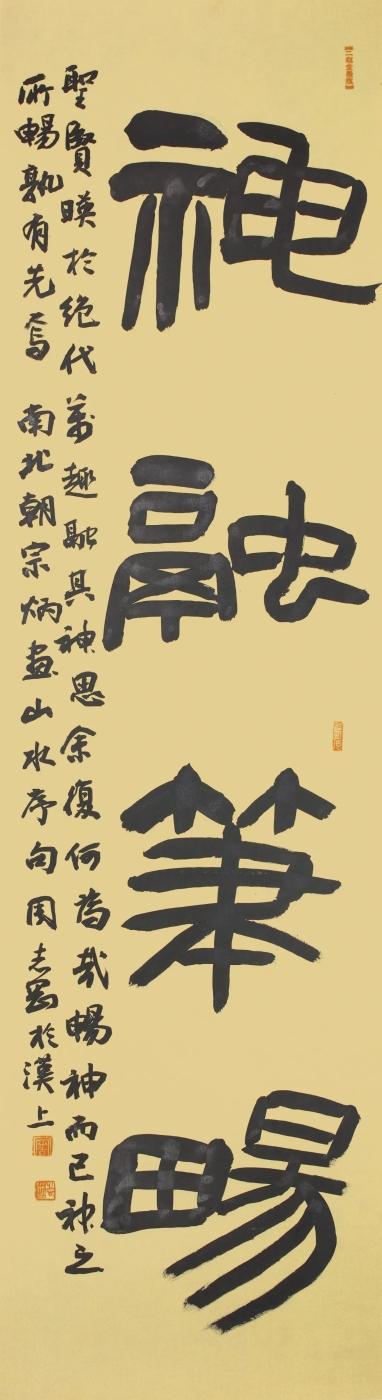 神融筆暢
聖賢暎於绝代萬趣融其神思余復何為哉暢神而已神之
所暢孰有先焉 南北朝宗炳畫山水序句周志剛於漢上